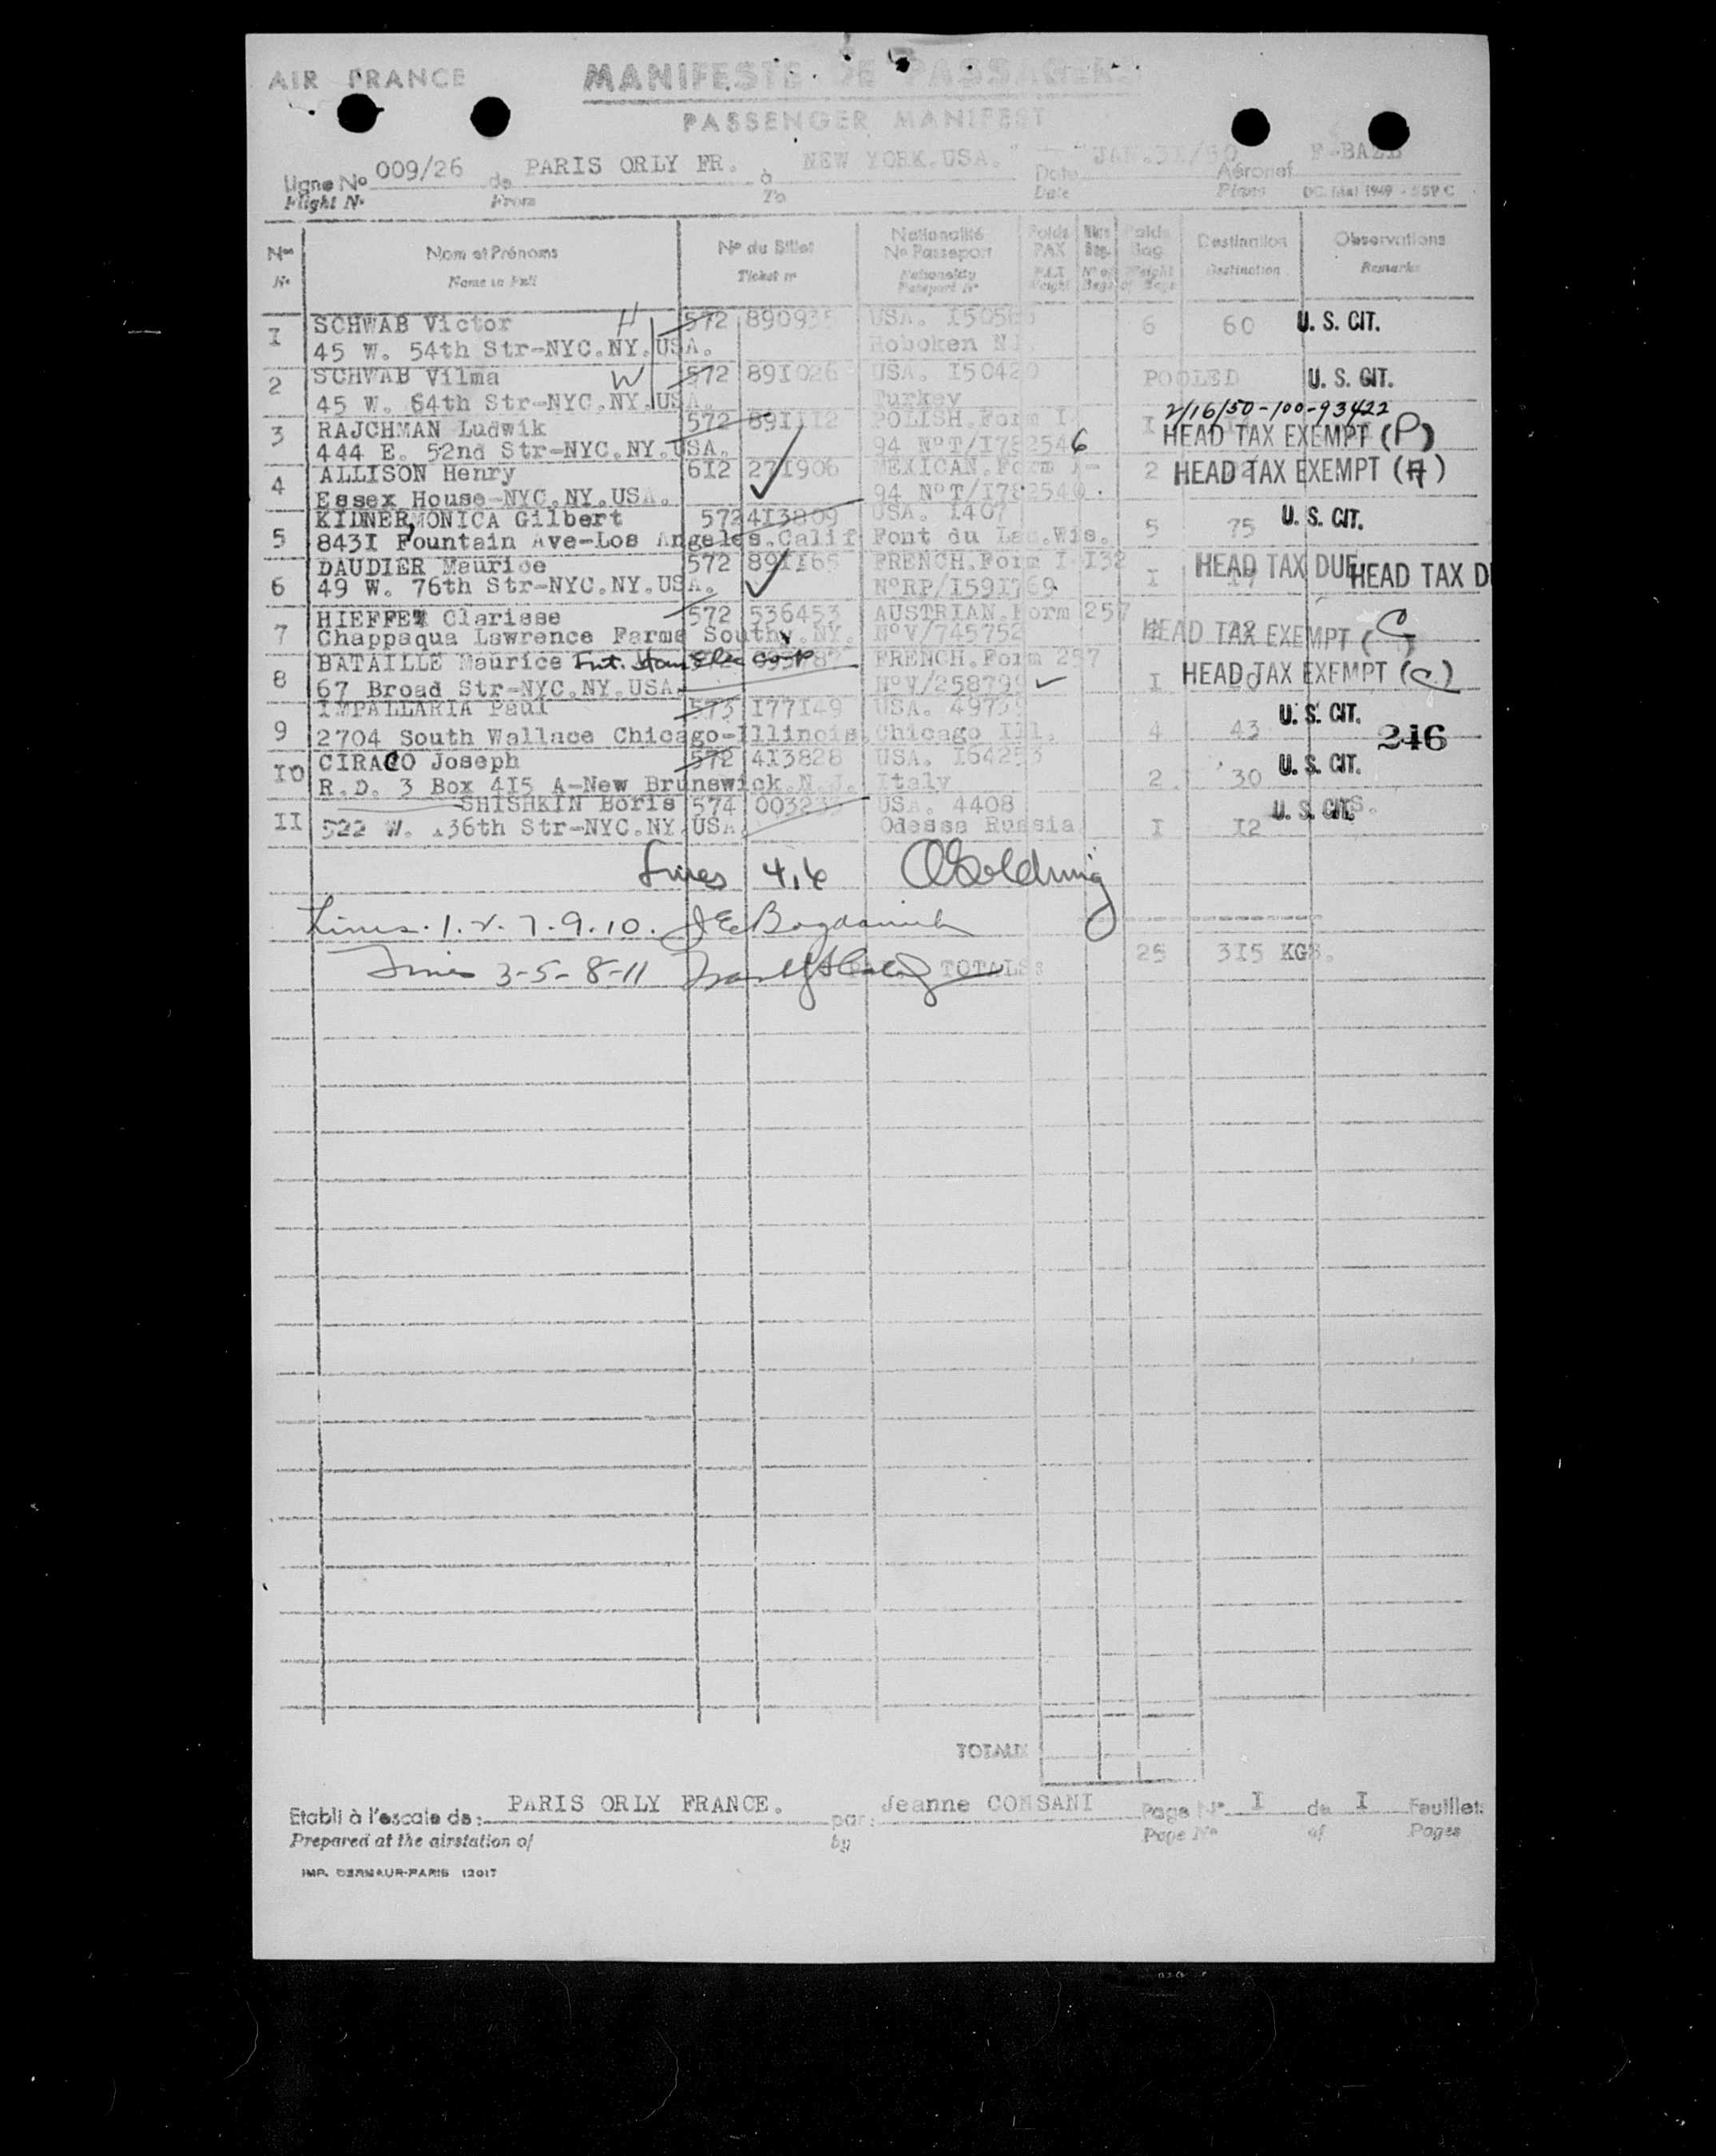 AIR FRANCE
MANIFESTE DE PASSAGERS
PASSENGER MANIFEST
Ligne No 009/26 de PARIS ORLY FR. à NEW YORK.USA. Date JAN.31/50 Aéronef
Flight No From To Date Plane
Nos Nom et Prénoms No du Billet Nationalité No Passeport Poids PAX Nbre Bag. Poids Bag Destination Observations
No Name in Full Ticket no Nationality Passport No PAX Weight No of Bags Weight of Bags Destination Remarks
1 SCHWAB Victor H 572 USA. 6 60 U. S. CIT.
45 W. 54th Str-NYC.NY.USA. Hoboken NJ.
2 SCHWAB Vilma W 572 891026 USA. 150420 POOLED U. S. CIT.
45 W. 64th Str-NYC.NY.USA. Turkey
2/16/50-100-93422
3 RAJCHMAN Ludwik 572 891112 POLISH.Form I- I HEAD TAX EXEMPT (P)
444 E. 52nd Str-NYC.NY.USA. 94 NoT/1782546
4 ALLISON Henry 612 271906 MEXICAN.Form I- 2 HEAD TAX EXEMPT (A)
Essex House-NYC.NY.USA. 94 NoT/1782540.
5 KIDNER,MONICA Gilbert 572 413809 USA. 1407 5 75 U. S. CIT.
8431 Fountain Ave-Los Angeles.Calif Font du Lac.Wis.
6 DAUDIER Maurice 572 891165 FRENCH.Form I-132 I HEAD TAX DUE HEAD TAX D
49 W. 76th Str-NYC.NY.USA. NoRP/1591769
7 HIEFFET Clarisse 572 536453 AUSTRIAN.Form 257 HEAD TAX EXEMPT (C)
Chappaqua Lawrence Farms South.NY. NoV/745752
8 BATAILLE Maurice Int. Stan Elec Corp FRENCH.Form 257 I HEAD TAX EXEMPT (C)
67 Broad Str-NYC.NY.USA. NoV/258799
9 IMPALLARIA Paul 573 177149 USA. 4 43 U. S. CIT.
2704 South Wallace Chicago-Illinois.Chicago Ill. 246
10 CIRACO Joseph 572 413828 USA. 164253 2 30 U. S. CIT.
R.D. 3 Box 415 A-New Brunswick.N.J. Italy
11 SHISHKIN Boris 574 USA. 4408 I 12 U. S. CIT.
522 W. 136th Str-NYC.NY.USA. Odessa Russia
Lines 4,6
Lines. 1.2. 7.9.10.
Lines 3-5-8-11 TOTALS: 25 315 KGS.
TOTAUX
Etabli à l'escale de: PARIS ORLY FRANCE. par: Jeanne CONSANI Page No I de I Feuillets
Prepared at the airstation of by Page No of Pages
IMP. DERMAUR-PARIS 12017